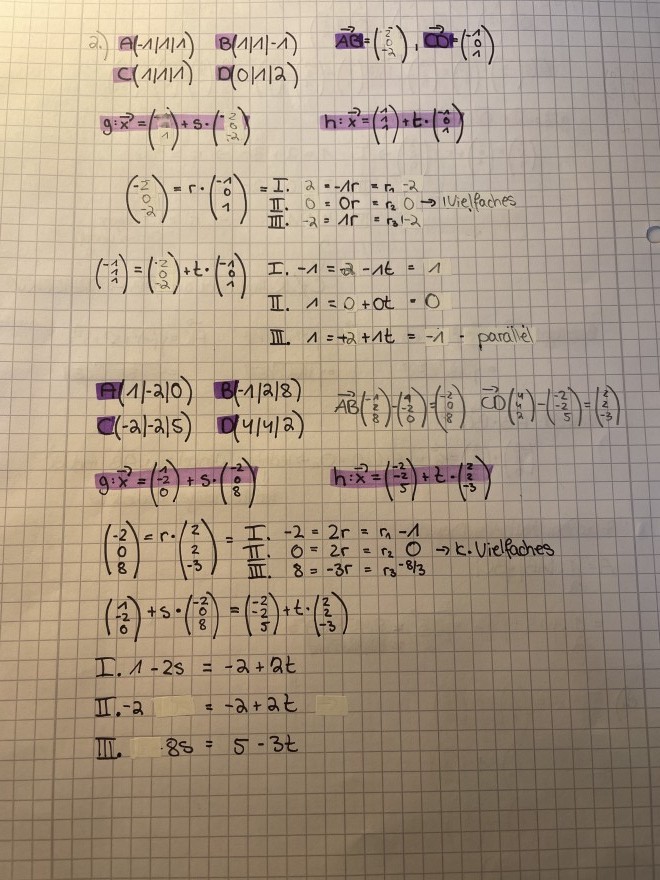 2.) A(-1|1|1) B(1|1|-1) AB→=(2 0 -2), CD→=(-1 0 1)
C(1|1|1) D(0|1|2)
g:x→=( 1)+s·(2 0 -2) h:x→=(1 1 1)+t·(-1 0 1)
(-2 0 -2)=r·(-1 0 1) = I. 2 = -1r = r₁ -2
II. 0 = 0r = r₂ 0 → !Vielfaches
III. -2 = 1r = r₃ -2
(-1 1 1)=(-2 0 -2)+t·(-1 0 1) I. -1 = -2 -1t = 1
II. 1 = 0 + 0t = 0
III. 1 = +2 + 1t = -1 - parallel
A(1|-2|0) B(-1|2|8) AB→(-1 2 8)-(1 -2 0)=(-2 0 8) CD→(4 4 2)-(-2 -2 5)=(2 2 -3)
C(-2|-2|5) D(4|4|2)
g:x→=(1 -2 0)+s·(-2 0 8) h:x→=(-2 -2 5)+t·(2 2 -3)
(-2 0 8)=r·(2 2 -3) = I. -2 = 2r = r₁ -1
II. 0 = 2r = r₂ 0 → k. Vielfaches
III. 8 = -3r = r₃ -8/3
(1 -2 0)+s·(-2 0 8)=(-2 -2 5)+t·(2 2 -3)
I. 1 - 2s = -2 + 2t
II. -2 = -2 + 2t
III. 8s = 5 - 3t